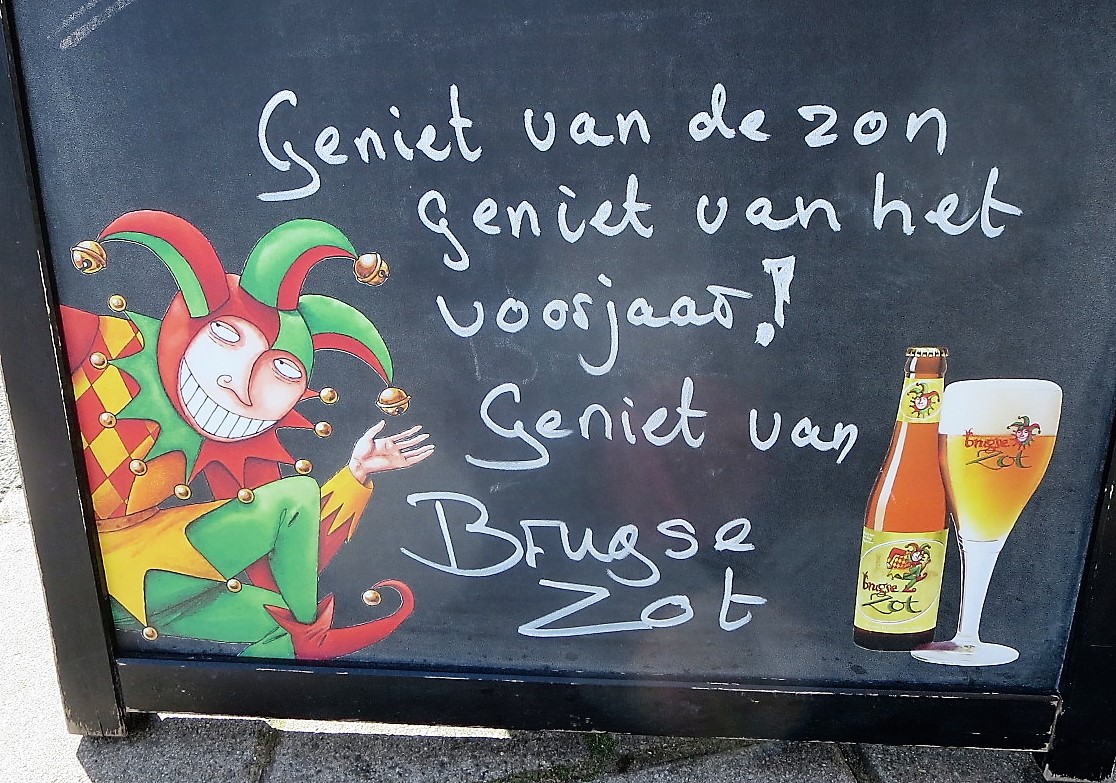 Geniet van de zon
geniet van het
voorjaar!
Geniet van
Brugse
Zot
brugse
Zot
brugse
Zot